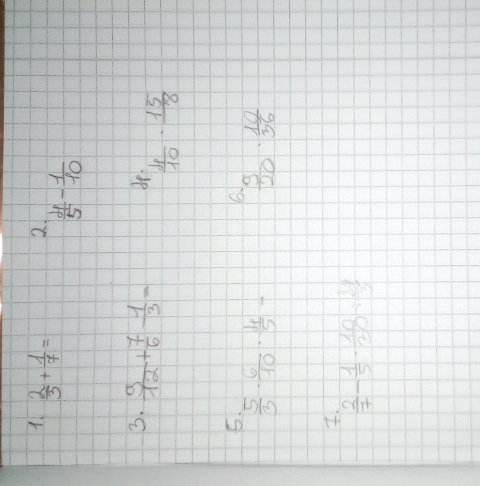 1. 2/3 + 1/7 =
2. 4/5 - 1/10
3. 9/12 + 7/6 - 1/3 =
4. 4/10 · 15/8
5. 5/3 · 6/10 · 4/5 =
6. 9/20 · 10/36
7. 2/7 - 1/5 · 10/20